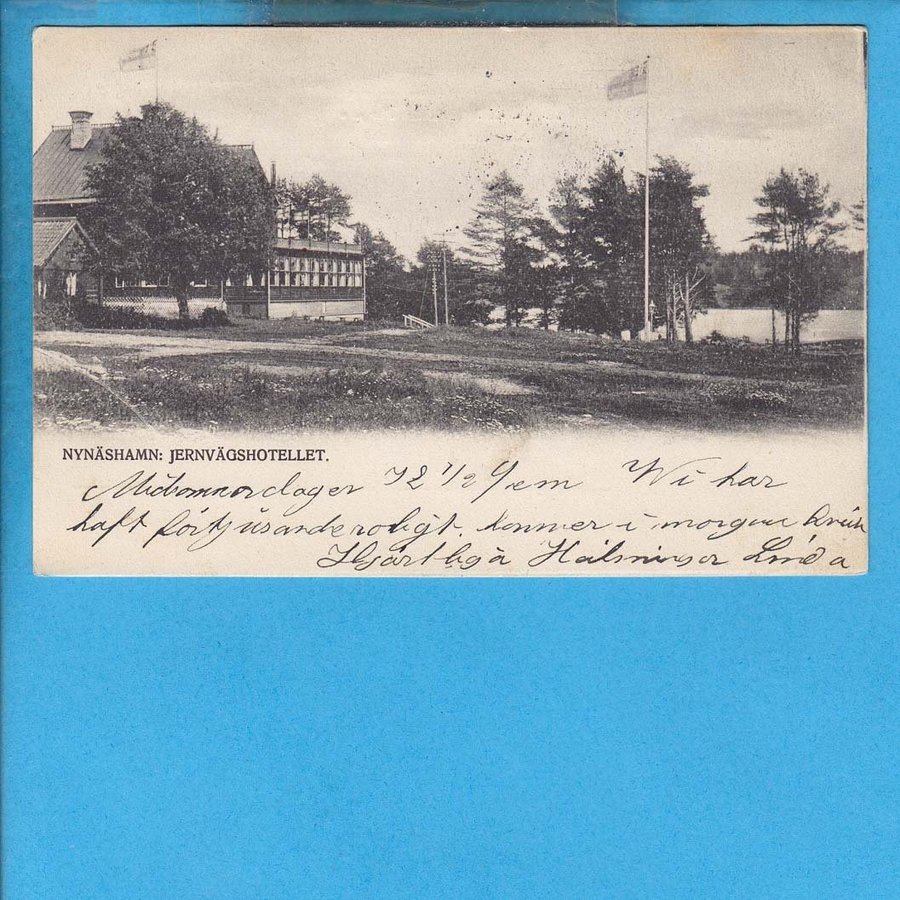 NYNÄSHAMN: JERNVÄGSHOTELLET.
Midsommardager 12 1/2 em Wi har
haft förtjusande roligt. kommer i morgon
Hjärtliga Hälsningar Linda